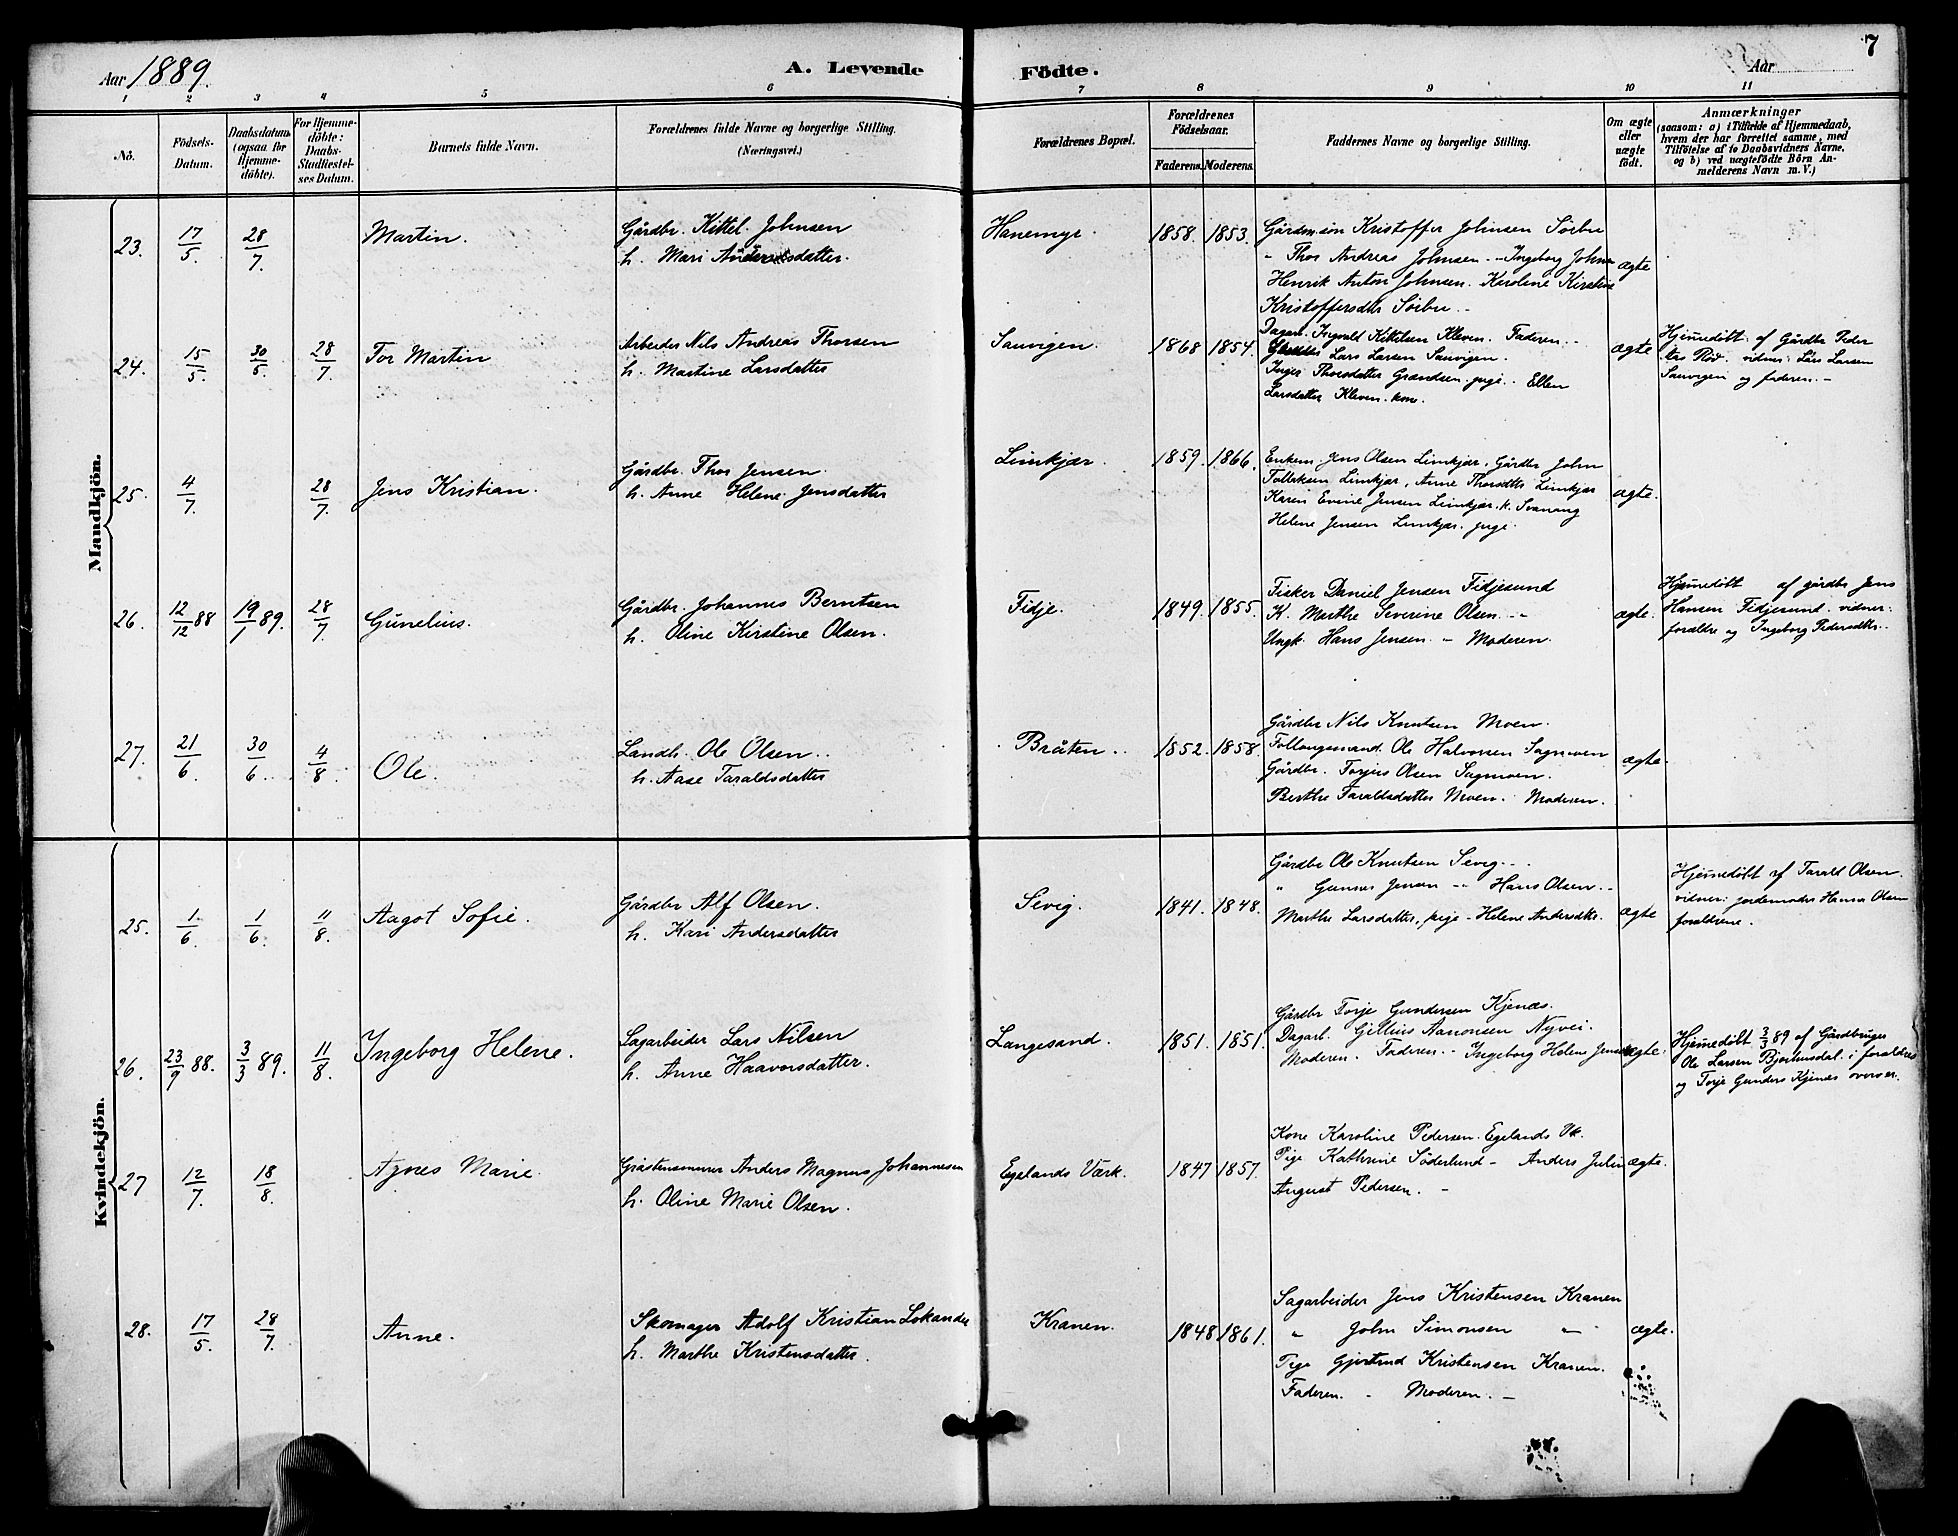 Aar 1889.
A. Levende Födte.
Aar
7
1 2 3 4 5 6 7 8 9 10 11
No.
Födsels-Datum.
Daabsdatum (ogsaa for Hjemme-döbte).
For Hjemme-döbte: Daabs-Stadfæstel-ses Datum.
Barnets fulde Navn.
Forældrenes fulde Navne og borgerlige Stilling.
(Næringsvei.)
Forældrenes Bopæl.
Forældrenes Födselsaar.
Faderens. Moderens.
Faddernes Navne og borgerlige Stilling.
Om ægte eller uægte födt.
Anmærkninger
(saasom: a) i Tilfælde af Hjemmedaab,
hvem der har forrettet samme, med
Tilföielse af to Daabsvidners Navne,
og b) ved uægtefödte Börn An-
melderens Navn m. V.)
Mandkjön.
23. 17/5. 28/7. Martin.
Gårdbr. Kittel Johnsen
h. Mari Andersdatter.
Hanemyr. 1858. 1853.
Gårdm.søn Kristoffer Johnsen Sörbu
" Thor Andreas Johnsen - - Ingeborg Johns
Henrik Anton Johnsen. Karoline Kirstine
Kristoffersdtr Sörbu. -
ægte
24. 15/5. 30/5 28/7 Tor Martin
Arbeider Nils Andreas Thorsen
h. Martine Larsdatter
Sauvigen. 1868 1854.
Dagarb. Ingvald Kittelsen Kleven. Faderen. -
Lars Larsen Sauvigen.
Inger Thorsdatter Grandsen. pige. - Ellen
Larsdatter Kleven. kone.
ægte
Hjemmedöbt af Gårdbr Peder
vidner: Lars Larsen
Sauvigen og faderen. -
25. 4/7. 28/7. Jens Kristian.
Gårdbr. Thor Jensen
h. Anne Helene Jensdatter
Limkjær. 1859. 1866.
Enkem. Jens Olsen Limkjær. Gårdbr John
Tolleksen Limkjær, Anne Thorsdtr Limkjær
Karen Evine Jensen Limkjær. k. Svanaug
Helene Jensen Limkjær. pige.
ægte.
26. 12/12 88 19/1 89. 28/7 Gunelius.
Gårdbr. Johannes Berntsen
h. Oline Kirstine Olsen.
Fidje. 1849. 1855.
Fisker Daniel Jensen Fidjesund
K. Marthe Severine Olsen. - -
Ungk. Hans Jensen. - Moderen.
ægte.
Hjemmedöbt af gårdbr Jens
Hansen Fidjesund. vidner:
forældre og Ingeborg Pedersdtr. -
27. 21/6. 30/6. 4/8. Ole.
Landh. Ole Olsen. -
h. Aase Taraldsdatter
Bråten. 1852. 1858.
Gårdbr Nils Knutsen Moen.
Follaugsmand. Ole Halvorsen Sagmoen
Gårdbr. Torjus Olsen Sagmoen.
Berthe Taraldsdatter Moen. Moderen.
ægte.
Kvindekjön.
25. 1/6. 1/6. 11/8. Aagot Sofie.
Gårdbr Alf Olsen.
h. Kari Andersdatter
Sevig. 1841. 1848.
Gårdbr Ole Knutsen Sevig. - -
" Gunner Jensen - " Hans Olsen. -
Marthe Larsdatter, pige - Helene Andersdtr.
ægte
Hjemedöbt af Tarald Olsen.
vidner: jordemoder Hanna Olsen
forældrene.
26. 23/9 88. 3/3 89. 11/8. Ingeborg Helene.
Sagarbeider Lars Nilsen
h. Anne Haavorsdatter.
Langesand. 1851. 1851.
Gårdbr Torje Gundersen Kjenæs.
Dagarb. Gjellius Aanonsen Nyvei.
Moderen. Faderen. - Ingeborg Helene Jensen
ægte.
Hjemedöbt 3/3 89 af Gårdbruger
Ole Larsen Bjortnsdal. i forældres
og Torje Gunders Kjenæs overvær.
27 12/7. 18/8. Agnes Marie.
Gråstensmurer Anders Magnus Johannesen
h. Oline Marie Olsen.
Egelands Værk. 1847 1857.
Kone Karoline Pedersen. Egelands Vk.
Pige Kathrine Söderlund - Anders Julin
August Pedersen. -
ægte.
28. 17/5. 28/7. Anne.
Skomager Adolf Kristian Lokander
h. Marthe Kristensdatter.
Kranen. 1848. 1861.
Sagarbeider Jens Kristensen Kranen
" John Simonsen "
Pige Gjertrud Kristensen Kranen.
Faderen. - Moderen. -
ægte.